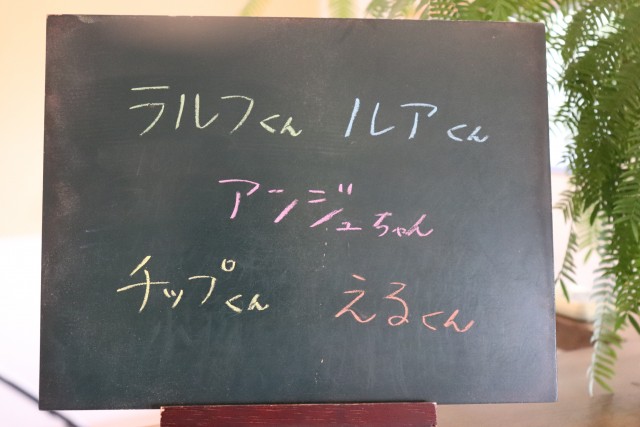 ラルフくん ルアくん
アンジュちゃん
チップくん えるくん